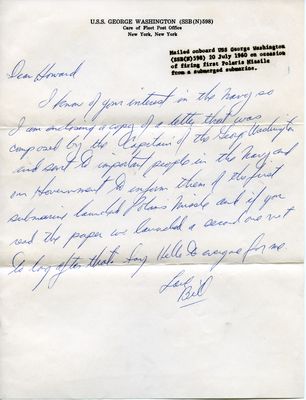 U.S.S. GEORGE WASHINGTON (SSB(N)598)
Care of Fleet Post Office
New York, New York
Mailed onboard USS George Washington
(SSB(N)598) 20 July 1960 on occasion
of firing first Polaris Missile
from a submerged submarine.
Dear Howard
I know of your interest in the Navy so
I am enclosing a copy of a letter that was
composed by the Captain of the George Washington
and sent to important people in the Navy and
our Government to inform them of the first
submarine launched Polaris Missle and if you
read the paper we launched a second one not
to long after that. Say Hello to everyone for me.
Love
Bill